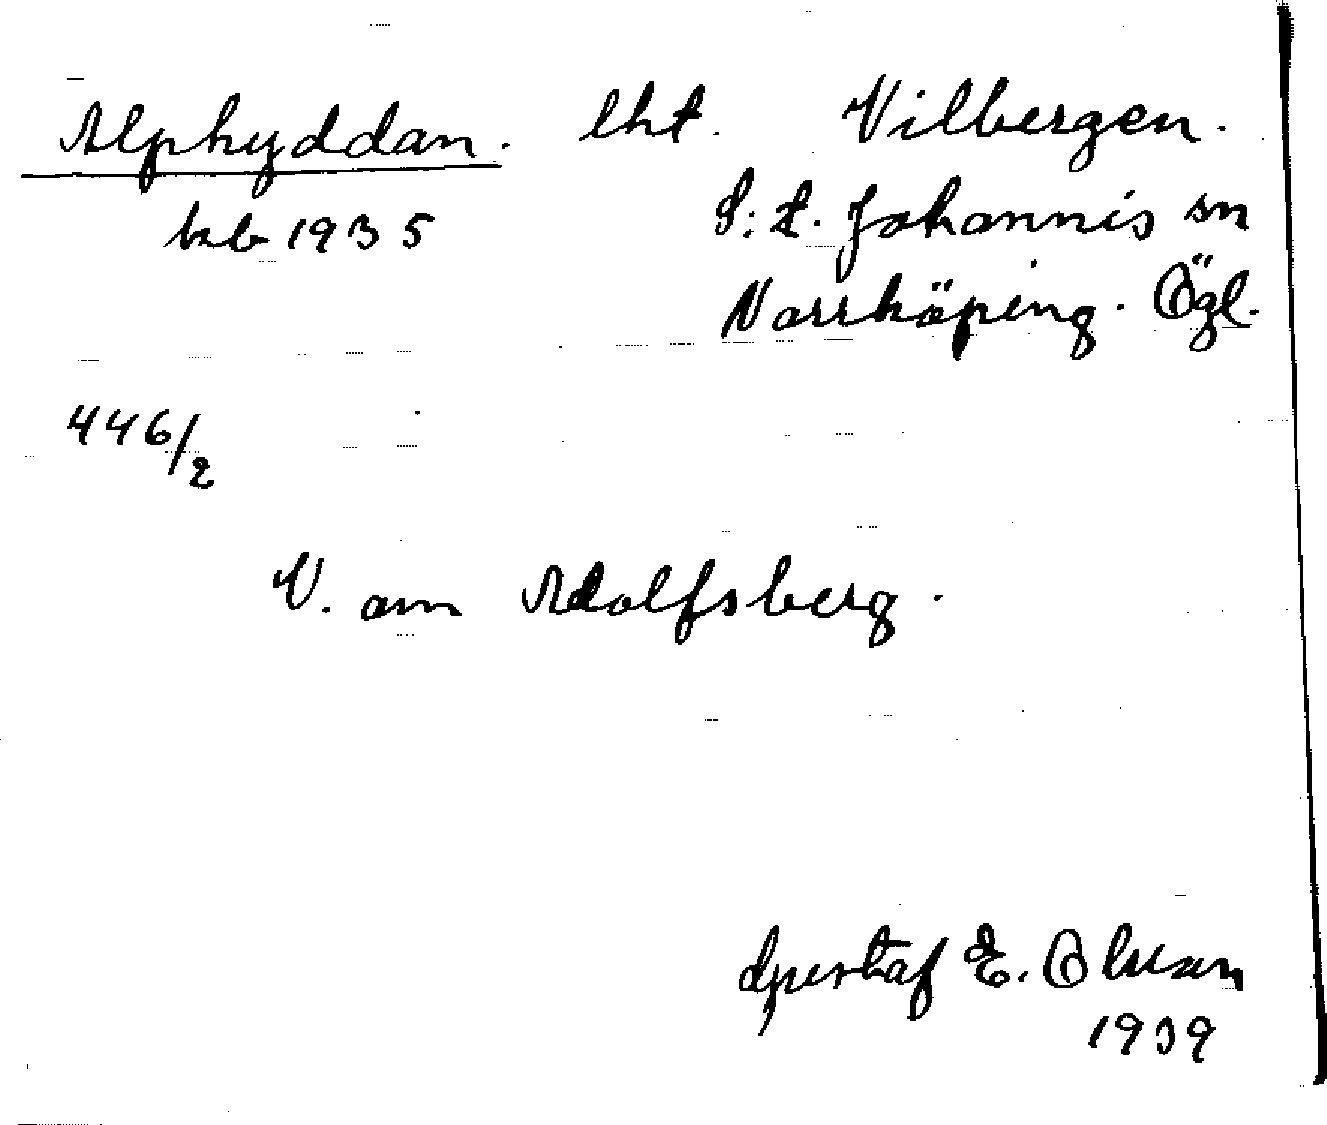 Alphyddan. lht. Vilbergen.
beb 1935 S:t. Johannis sn
Norrköping. Ögl.
446/2
V. om Adolfsberg.
Gustaf E. Olsson
1939